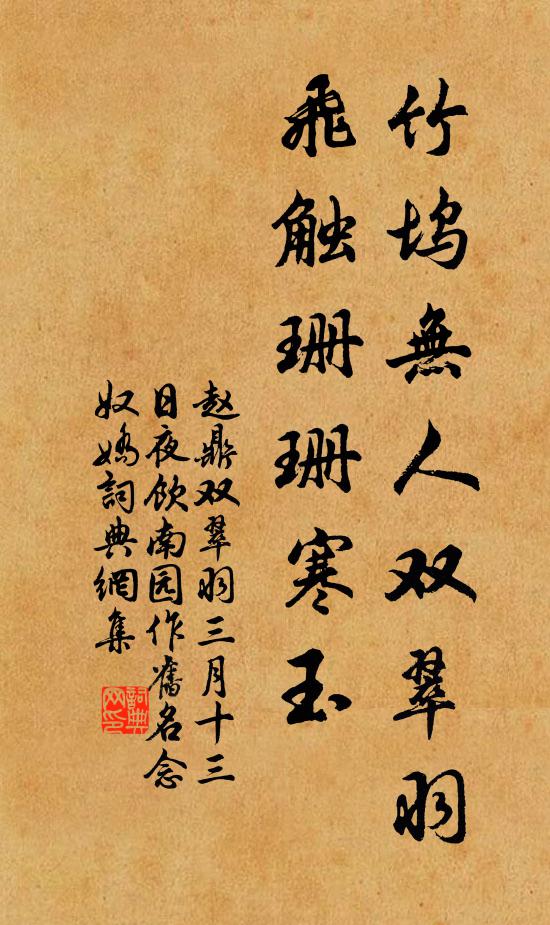 竹坞無人双翠羽
飛触珊珊寒玉
赵鼎双翠羽三月十三
日夜飲南园作舊名念
奴嬌詞典網集
詞典
网印